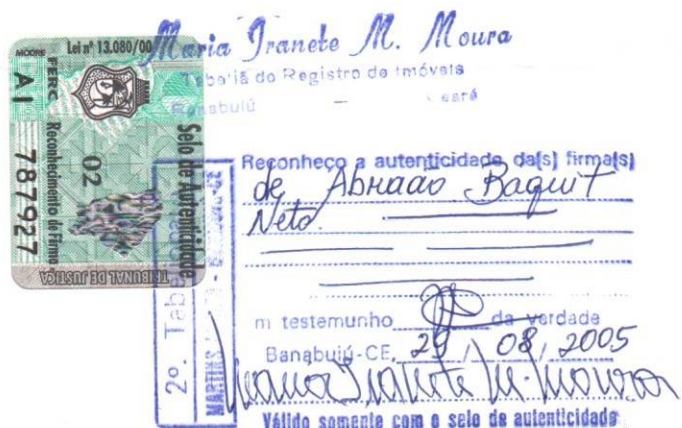 Maria Iranete M. Moura
Tabeliã do Registro de Imóveis
Banabuiú — Ceará
MOORE
Lei nº 13.080/00
FERC
AI
Selo de Autenticidade
Reconhecimento de Firma
02
787927
TRIBUNAL DE JUSTIÇA
2º. Tab
MARTINS
Reconheço a autenticidade da(s) firma(s)
de Abraão Baquit
Neto.
m testemunho da verdade
Banabuiú-CE, 29 / 08 / 2005
Maria Iranete M. Moura
Válido somente com o selo de autenticidade